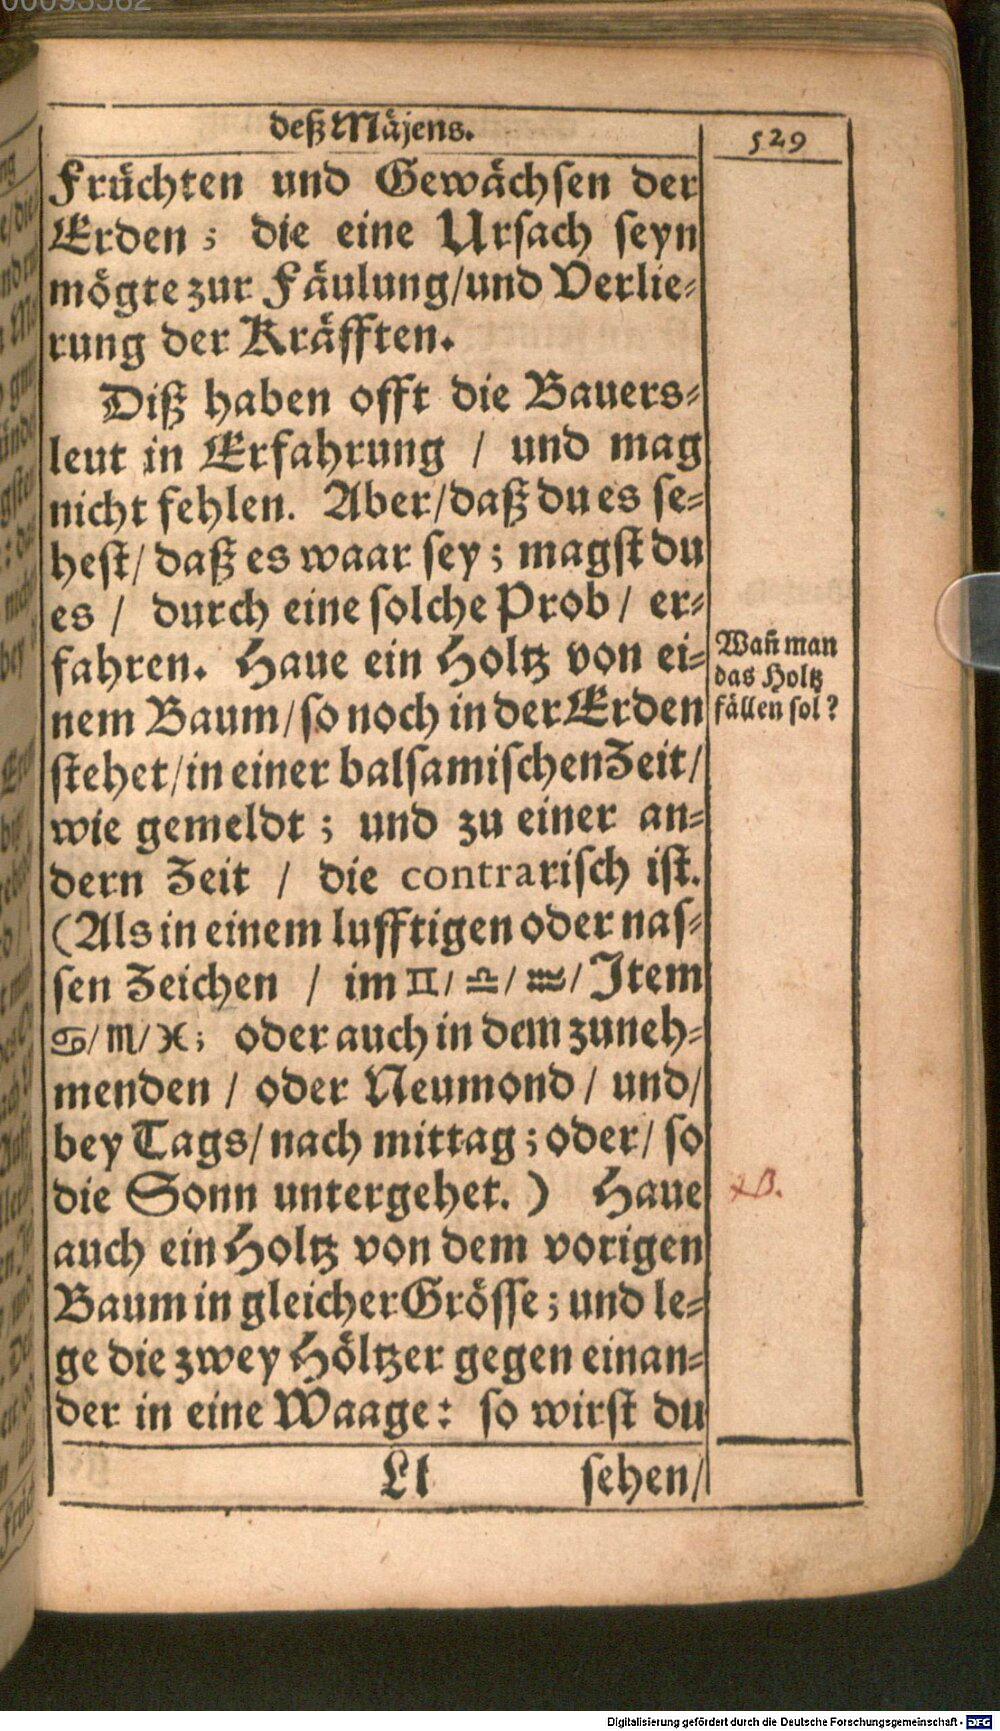 00093562
deß Mäjens.
529
Früchten und Gewächsen der
Erden; die eine Ursach seyn
mögte zur Fäulung/und Verlie-
rung der Kräfften.
Diß haben offt die Bauers-
leut in Erfahrung / und mag
nicht fehlen. Aber/daß du es se-
hest/ daß es waar sey; magst du
es / durch eine solche Prob / er-
fahren. Haue ein Holtz von ei-
nem Baum/so noch in der Erden
stehet/in einer balsamischen Zeit/
wie gemeldt; und zu einer an-
dern Zeit / die contrarisch ist.
(Als in einem lufftigen oder nas-
sen Zeichen / im ♊/ ♎/ ♒/ Item
♋/ ♏/ ♓; oder auch in dem zuneh-
menden / oder Neumond / und/
bey Tags/ nach mittag; oder/ so
die Sonn untergehet.) Haue
auch ein Holtz von dem vorigen
Baum in gleicher Grösse; und le-
ge die zwey Höltzer gegen einan-
der in eine Waage: so wirst du
Ll sehen/
Wañ man
das Holtz
fällen sol?
Digitalisierung gefördert durch die Deutsche Forschungsgemeinschaft - DFG